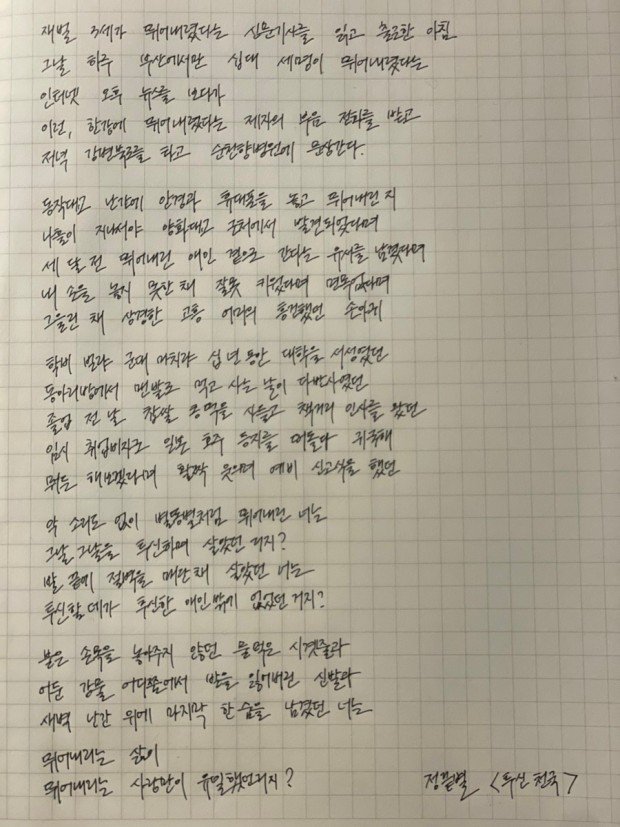 재벌 3세가 뛰어내렸다는 신문기사를 읽고 출근한 아침
그날 하루 부산에서만 십대 세명이 뛰어내렸다는
인터넷 오후 뉴스를 보다가
이런, 한강에 뛰어내렸다는 제자의 부음 전화를 받고
저녁 강변북로를 타고 순천향병원에 문상간다.
동작대교 난간에 안경과 휴대폰을 놓고 뛰어내린 지
나흘이 지나서야 양화대교 근처에서 발견되었다며
세 달 전 뛰어내린 애인 곁으로 간다는 유서를 남겼다며
내 손을 놓지 못한 채 잘못 키웠다며 면목없다며
그을린 채 상경한 고흥 어미의 흥건했던 손아귀
학비 벌랴 군대 마치랴 십 년 동안 대학을 서성였던
동아리방에서 맨발로 먹고 사는 날이 다반사였던
졸업 전 날 찹쌀 콩떡을 사들고 책거리 인사를 왔던
임시 취업비자로 일본 호주 등지를 떠돌다 귀국해
뭐든 해보겠다며 활짝 웃으며 예비 신고식을 했던
악 소리도 없이 별똥별처럼 뛰어내린 너는
그날그날을 투신하며 살았던 거지?
발 끝에 절벽을 매단 채 살았던 너는
투신할 데가 투신한 애인밖에 없었던 거지?
불은 손목을 놓아주지 않던 물먹은 시곗줄과
어둔 강물 어디쯤에서 발을 잃어버린 신발과
새벽 난간 위에 마지막 한숨을 남겼던 너는
뛰어내리는 삶이
뛰어내리는 사랑만이 유일했던 거지?
정끝별 <투신천국>